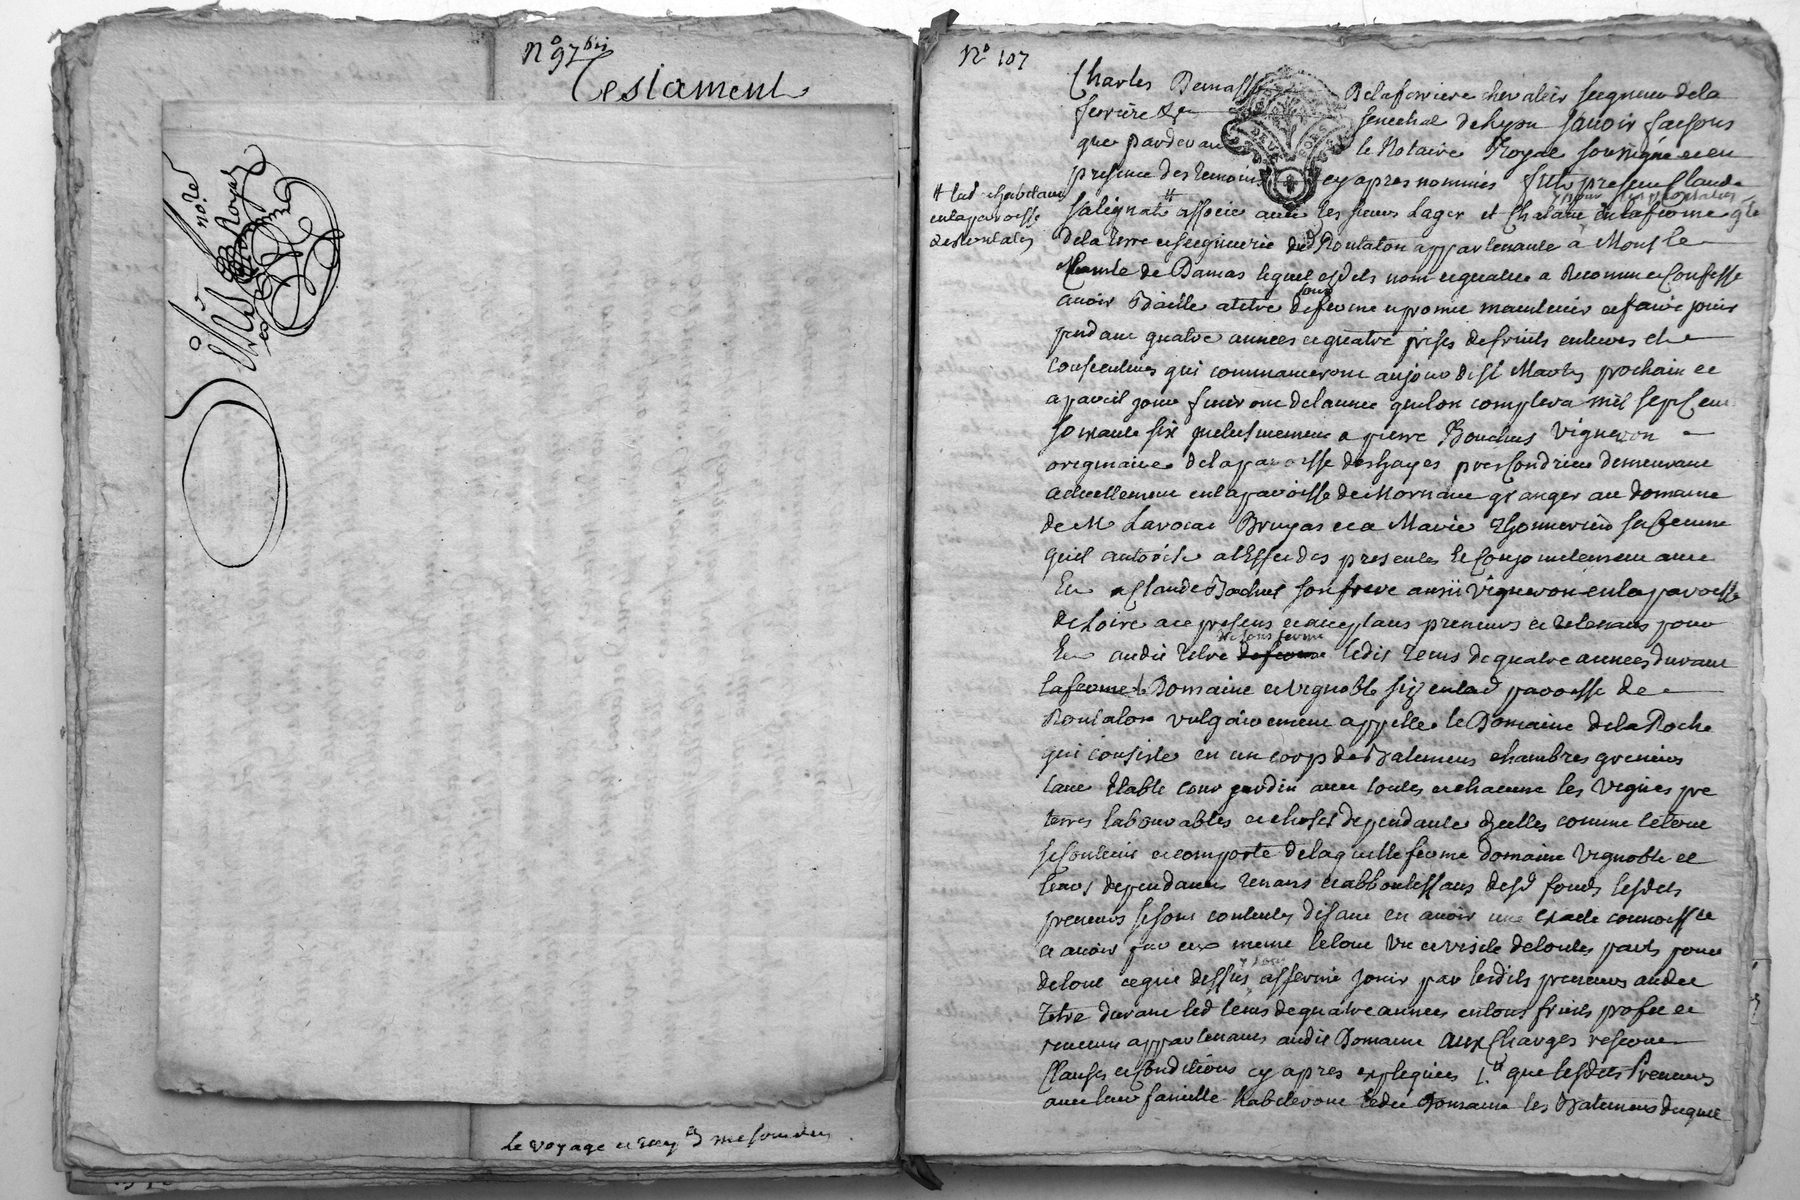 N° 97 bis
Testament
not.re Royal
Le voyage et
N° 107
Charles Demasse Delaferriere chevalier seigneur dela
ferriere &a senechal de Lyon savoir faisons
que pardevant le Notaire Royal soussigné et en
presence des temoins cy apres nommés fut present Claude
# lad. habitant
en la paroisse
de Rontalon
Salignat # associé avec les sieurs Lager et Chatard en la ferme gle
dela Terre et seigneurie dud Rontalon appartenante à Mons le
Comte de Damas lequel esdits nom et qualité a Reconnu et Confessé
avoir Baillé a titre de sous ferme et promis maintenir et faire jouir
pendant quatre années et quatre prises de fruits entieres et
consecutives qui commanceront au jour de St Martin prochain et
a pareil jour finiront de l'année que l'on comptera mil sept cent
soixante six inclusivement a pierre Bouchus Vigneron
originaire de la paroisse des hayes pres Condrieu demeurant
actuellement en la paroisse de Mornant granger au domaine
de Mr Lavocat Bruyas et a Marie Thonnerieu sa femme
quil autorise a l'Effet des presentes et Conjointement avec
Eux a Claude Bochus son frere aussi Vigneron en la paroisse
de Loire a ce presens et acceptans preneurs et retenans pour
Eux audit titre de sous ferme ledit tems de quatre années durant
la ferme Domaine et Vignoble siz en lad paroisse de
Rontalon vulgairement appellé le Domaine dela Roche
qui consiste en un corp de Batimens chambres greniers
cave Etable cour jardin avec toutes et chacune les vignes pre
terres labourables et choses dependante d'icelles comme le tout
se contient et comporte de laquelle ferme domaine Vignoble et
leurs dependances tenans et abboutissans desd fonds lesdits
preneurs se sont contentés disant en avoir une exacte connoissce
et avoir par eux meme le tout vu et visité de toutes parts pour
de tout ce que dessus affermé jouir par lesdits preneurs audit
titre durant led tems de quatre années en tous fruits profit et
revenus appartenants audit Domaine aux Charges reserve
Clauses et Conditions cy apres expliquées 1.° que lesdits Preneurs
avec leur famille habiteront ledit Domaine les Batimens duquel